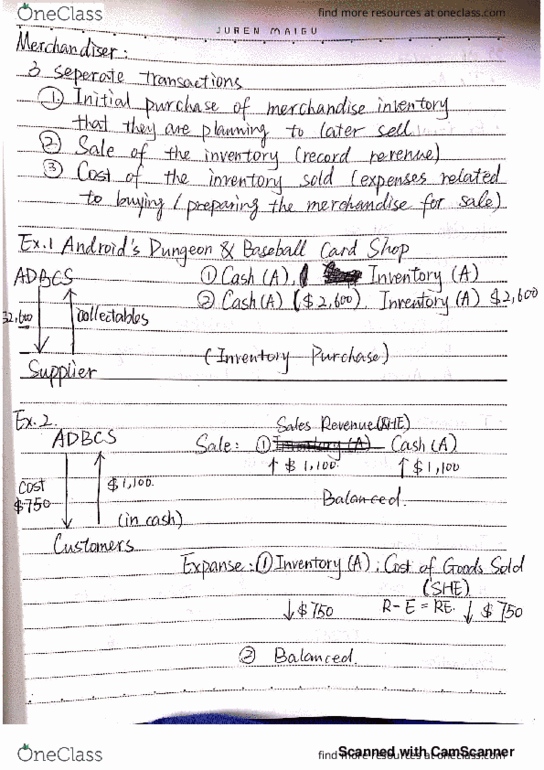 OneClass
find more resources at oneclass.com
JUREN MAIGU
Merchandiser:
3 seperate transactions
① Initial purchase of merchandise inventory
that they are planning to later sell
② Sale of the inventory (record revenue)
③ Cost of the inventory sold (expenses related
to buying / preparing the merchandise for sale)
Ex.1 Android's Dungeon & Baseball Card Shop
ADBCS ① Cash (A), Inventory (A)
② Cash (A) ($2,600), Inventory (A) $2,600
collectables
(Inventory Purchase)
Supplier
Ex.2.
Sales Revenue (SHE)
ADBCS Sale: ① Inventory (A) Cash (A)
↑ $1,100. ↑ $1,100
Cost
$750
$1,100.
(in cash)
Balanced.
Customers
Expanse: ① Inventory (A); Cost of Goods Sold
(SHE)
↓ $750 R-E = RE. ↓ $750
② Balanced.
OneClass
find more resources at oneclass.com
Scanned with CamScanner